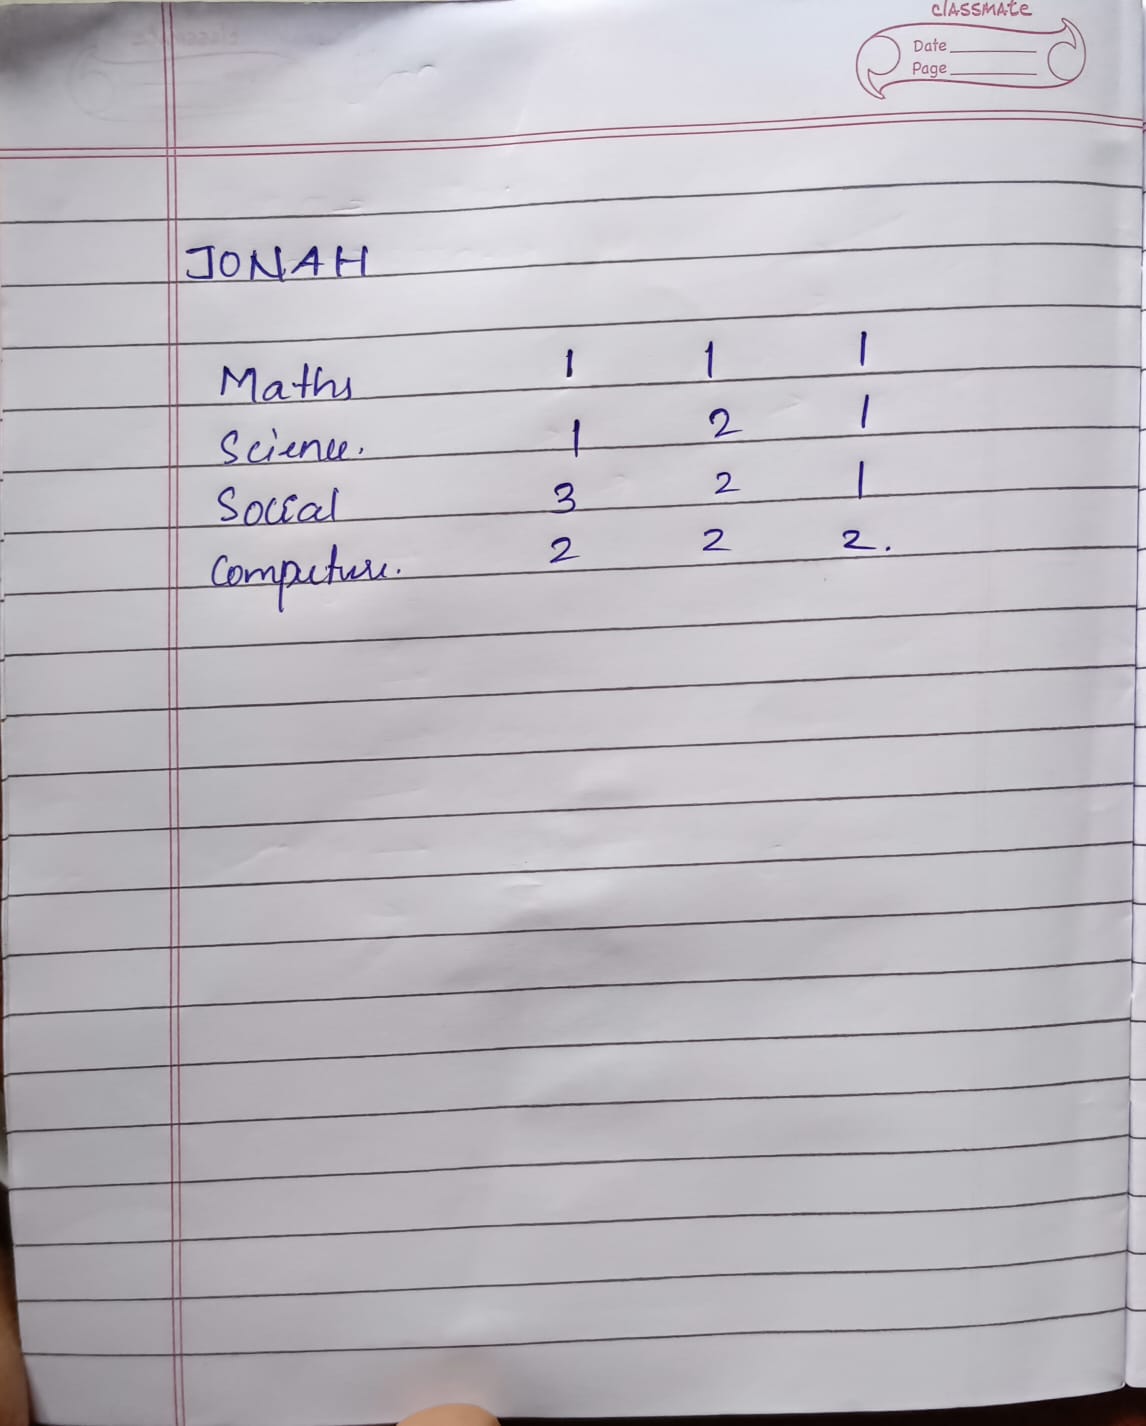 classmate
Date
Page
JONAH
Maths 1 1 1
Science. 1 2 1
Social 3 2 1
Computure. 2 2 2.